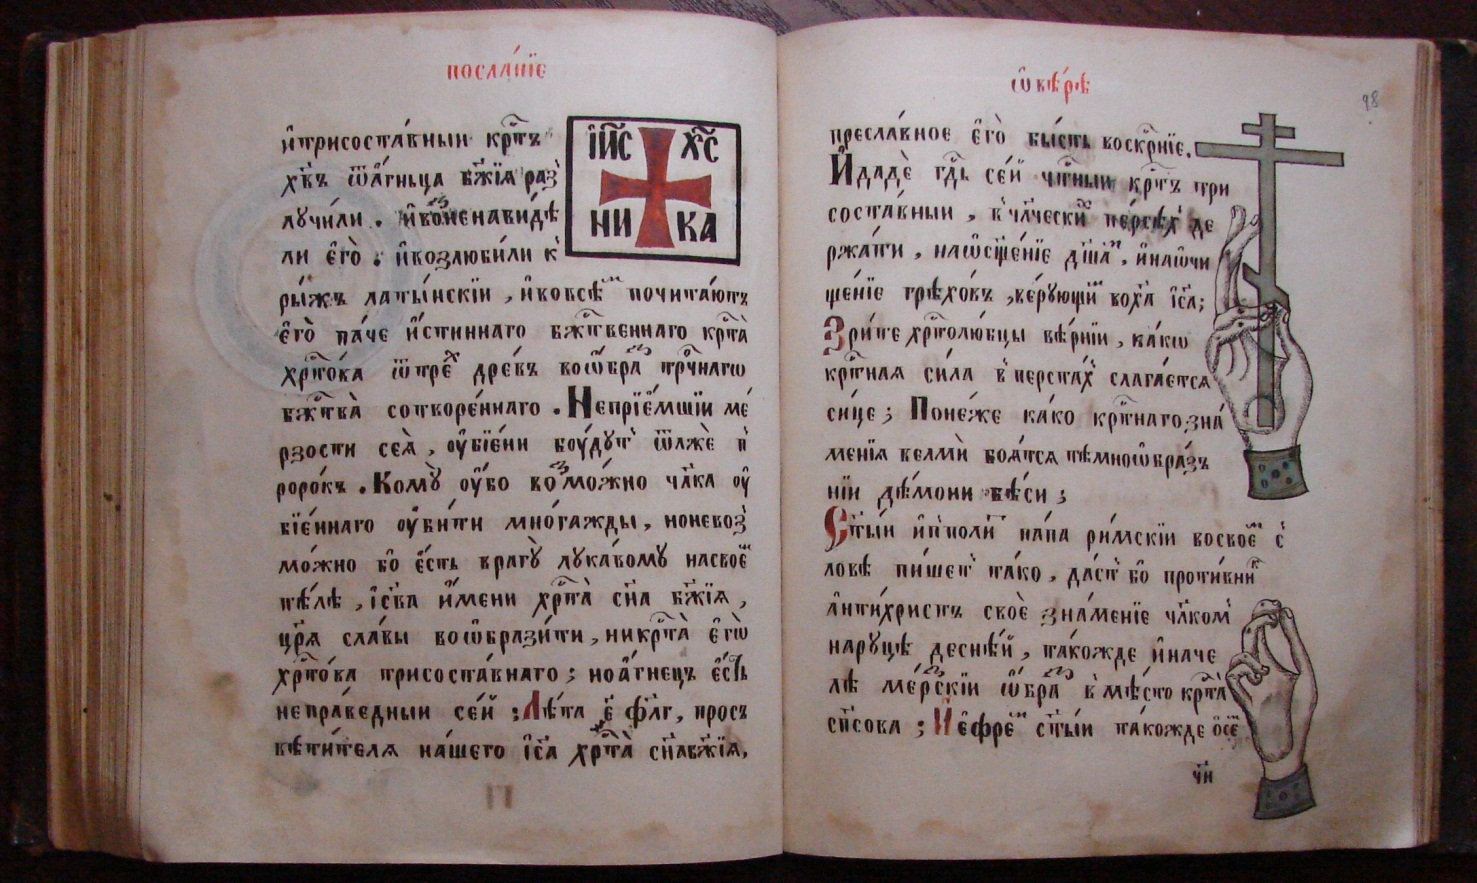 посла́нїе
и҆трисоста́вныи кр҃тъ
хв҃ъ ѿа҆́гньца бж҃їѧ раз̾
лучи́ли . и҆возненави́дѣ
ли є҆го̀ . и҆возлюби́ли к̾
І҆И҃С Х҃С
НИ КА
ры́жъ латы́нскїи , и҆вовсѣ́м почита́ютъ
є҆го̀ па́че и҆́стиннаго бж҃твеннаго кр҃та̀
хр҃то́ва ѿтре́х дре́въ воѡ҆́браз тр҃чнагѡ
бж҃тва̀ сотворе́ннаго . Непрїе́мшїи ме́
рзости сеѧ̀ , ѹ҆бїе́ни бꙋ́дꙋт̾ ѿлжѐ п̾
роро́къ . Комꙋ̀ ѹ҆́бо возмо́жно чл҃ка ѹ҆
бїе́ннаго ѹ҆би́ти мно́гажды , ноневоз̾
мо́жно бо є҆́сть врагꙋ̀ лꙋка́вомꙋ насвое́м
тѣ́лѣ , і҆с҃ва и҆́мени хр҃та̀ сн҃а бж҃їѧ ,
цр҃ѧ сла́вы воѡ҆брази́ти , никр҃та̀ є҆гѡ̀
хр҃то́ва трисоста́внаго ; ноа҆́гнецъ є҆́сть
непра́ведныи се́й ; Лѣ́та ҂є҃ фл҃г , просъ
вѣти́теля на́шего і҆с҃а хр҃та̀ сн҃абж҃їѧ ,
ѡ҆вѣ́рѣ
98
пресла́вное є҆го̀ бы́сть воскр҃нїе .
И҆дадѐ гд҃ь се́й чт҃ныи кр҃тъ три
соста́вныи , в̾чл҃чески́х пе́рсѣх̾ де
ржа́ти , наѡ҆сщ҃е́нїе дш҃а́м , и҆наѡ҆чи
ще́нїе грѣхо́въ , вѣ́рꙋющим вох҃а і҆с҃а ;
Зри́те хр҃толю́бцы вѣ́рнїи , ка́кѡ
кр҃тная си́ла в̾перста́х̾ слага́ется
си́це ; Поне́же ка́ко кр҃тнаго зна́
менїѧ велмѝ боѧ́тсѧ те́мноѡбра́зъ
нїи де́мони бѣ́си ;
Ст҃ы́и и҆пполи́т па́па ри́мскїи восвое́м с̾
ловѣ пи́шет̾ та́ко , да́ст̾ бо проти́вник
а҆нти́христъ своѐ зна́менїе чл҃ком̾
нарꙋцѣ десне́й , та́кожде и҆наче
лѣ ме́рзскїи ѡ҆́браз в̾мѣ́сто кр҃та̀
сп҃сова ; И҆є҆фре́м ст҃ы́и та́кожде ѻ҆се́м
ч҃и